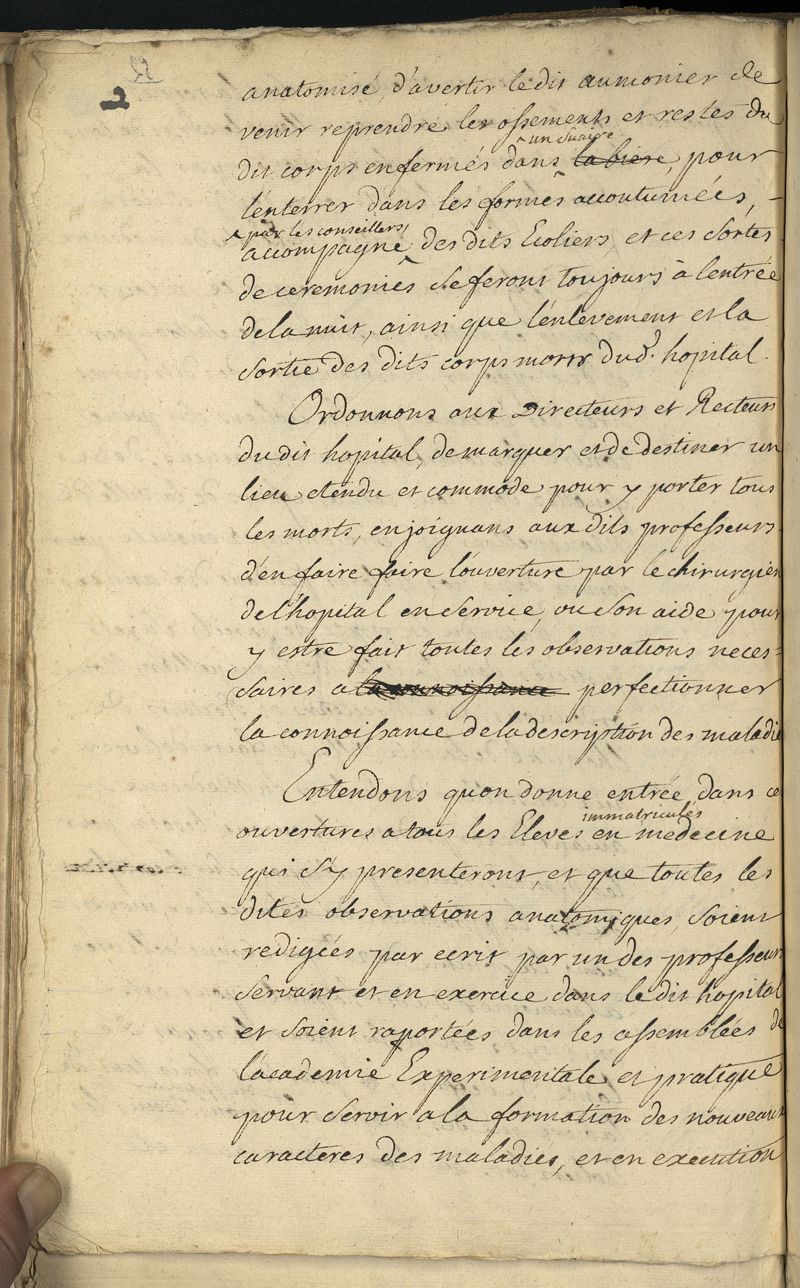 2
anatomisé, d'avertir ledit aumonier de
venir reprendre les ossements et restes du
un suaire
dit corps enfermés dans la biere, pour
l'enterrer dans les formes accoutumées,
par les conseillers
accompagné des dits Ecoliers, et ces sortes
de ceremonies se feront toujours à l'entrée
de la nuit, ainsi que l'enlevement et la
sortie des dits corps morts dud. hopital.
Ordonnons aux Directeurs et Recteurs
du dit hopital, de marquer et de destiner un
lieu etendu et commode pour y porter tous
les morts, enjoignans aux dits professeurs
d'en faire faire l'ouverture par le chirurgien
de l'hopital en service, ou son aide pour
y estre fait toutes les observations neces-
saires a la connoissance perfectionner
la connoissance de la description des maladie
Entendons quon donne entrée dans ce
immatriculés
ouvertures a tous les Eleves en medecine
qui s'y presenteront, et que toutes les
dites observations anatomiques, soient
redigées par ecrit par un des professeurs
servant et en exercice dans le dit hopital
et soient raportées dans les assemblées de
l'academie Experimentale et pratique
pour servir a la formation des nouveaux
caracteres des maladies, et en execution